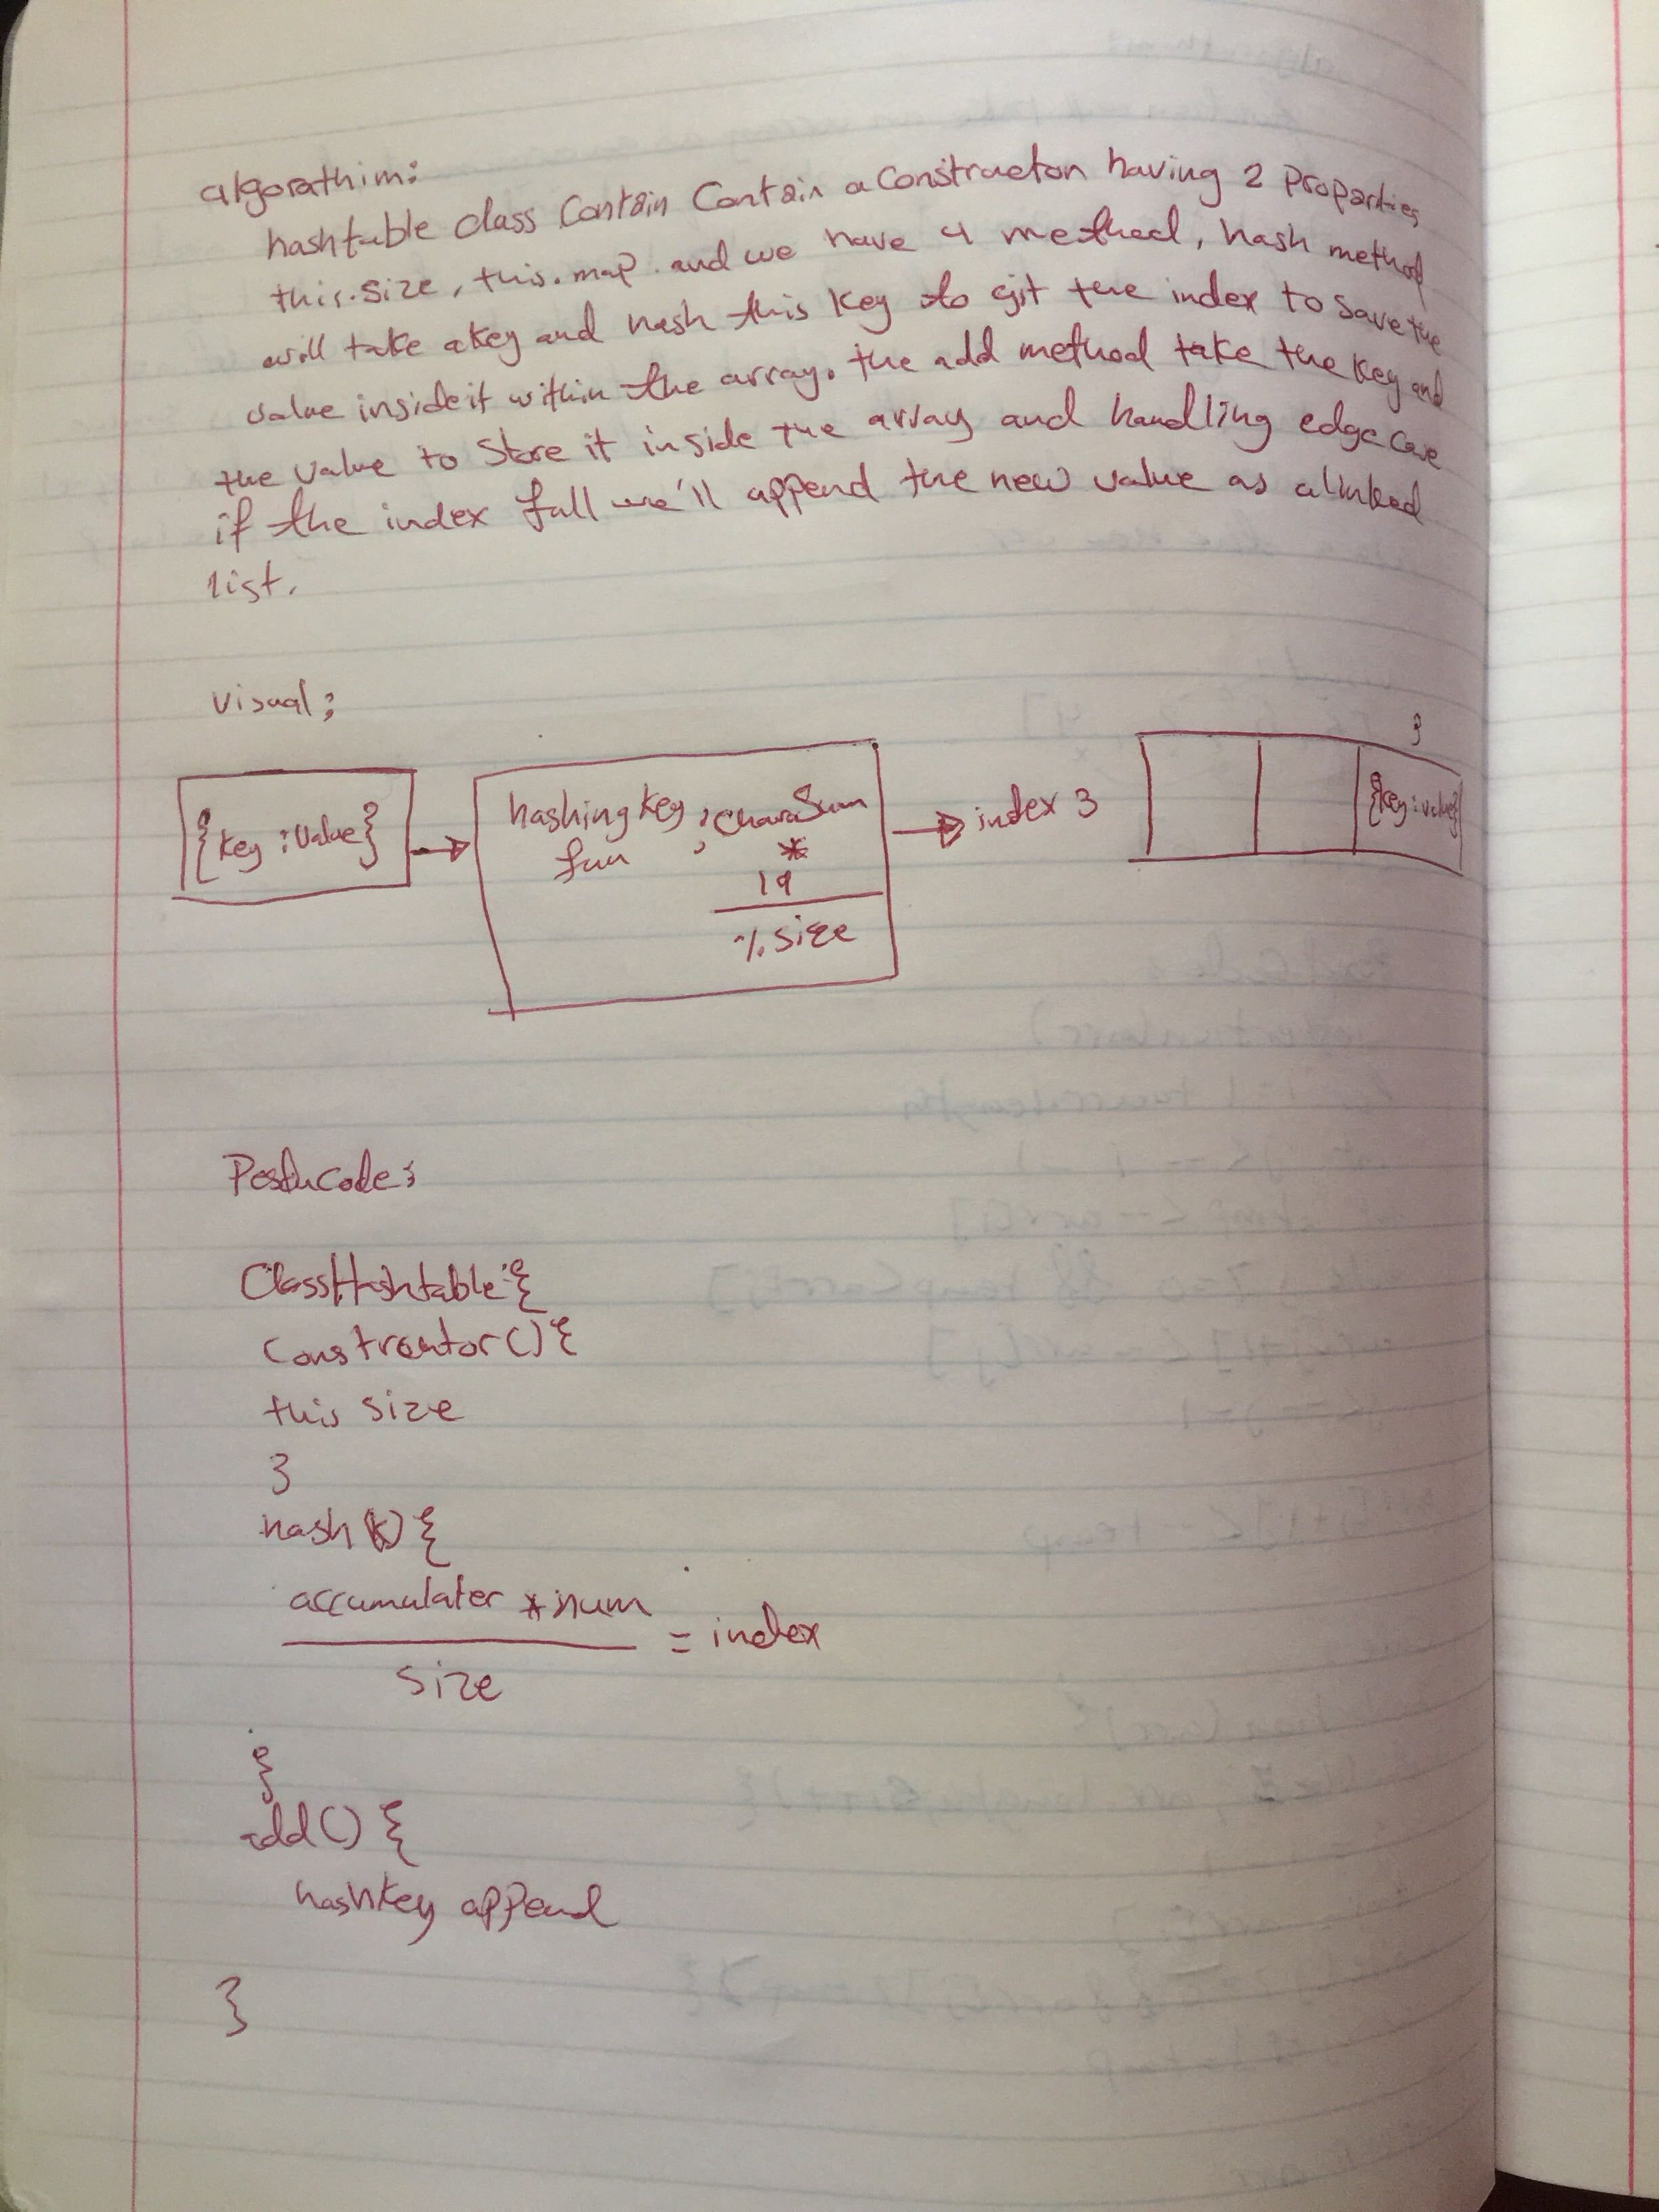 algorathim:
hashtable class Contain Contain a Constructor having 2 Properties
this.size, this.map. and we have 4 method, hash method
will take a key and hash this key to git the index to save the
value inside it within the array. the add method take the key and
the value to store it inside the array and handling edge case
if the index full we'll append the new value as a linked
list.
visual:
{key : value}
hashing key
fun
; charaSum
*
19
% size
index 3
3
{key : value}
Pesducode:
Class Hashtable {
Constructor () {
this size
}
hash (k) {
accumulater * num
= index
size
}
add () {
hashkey append
}